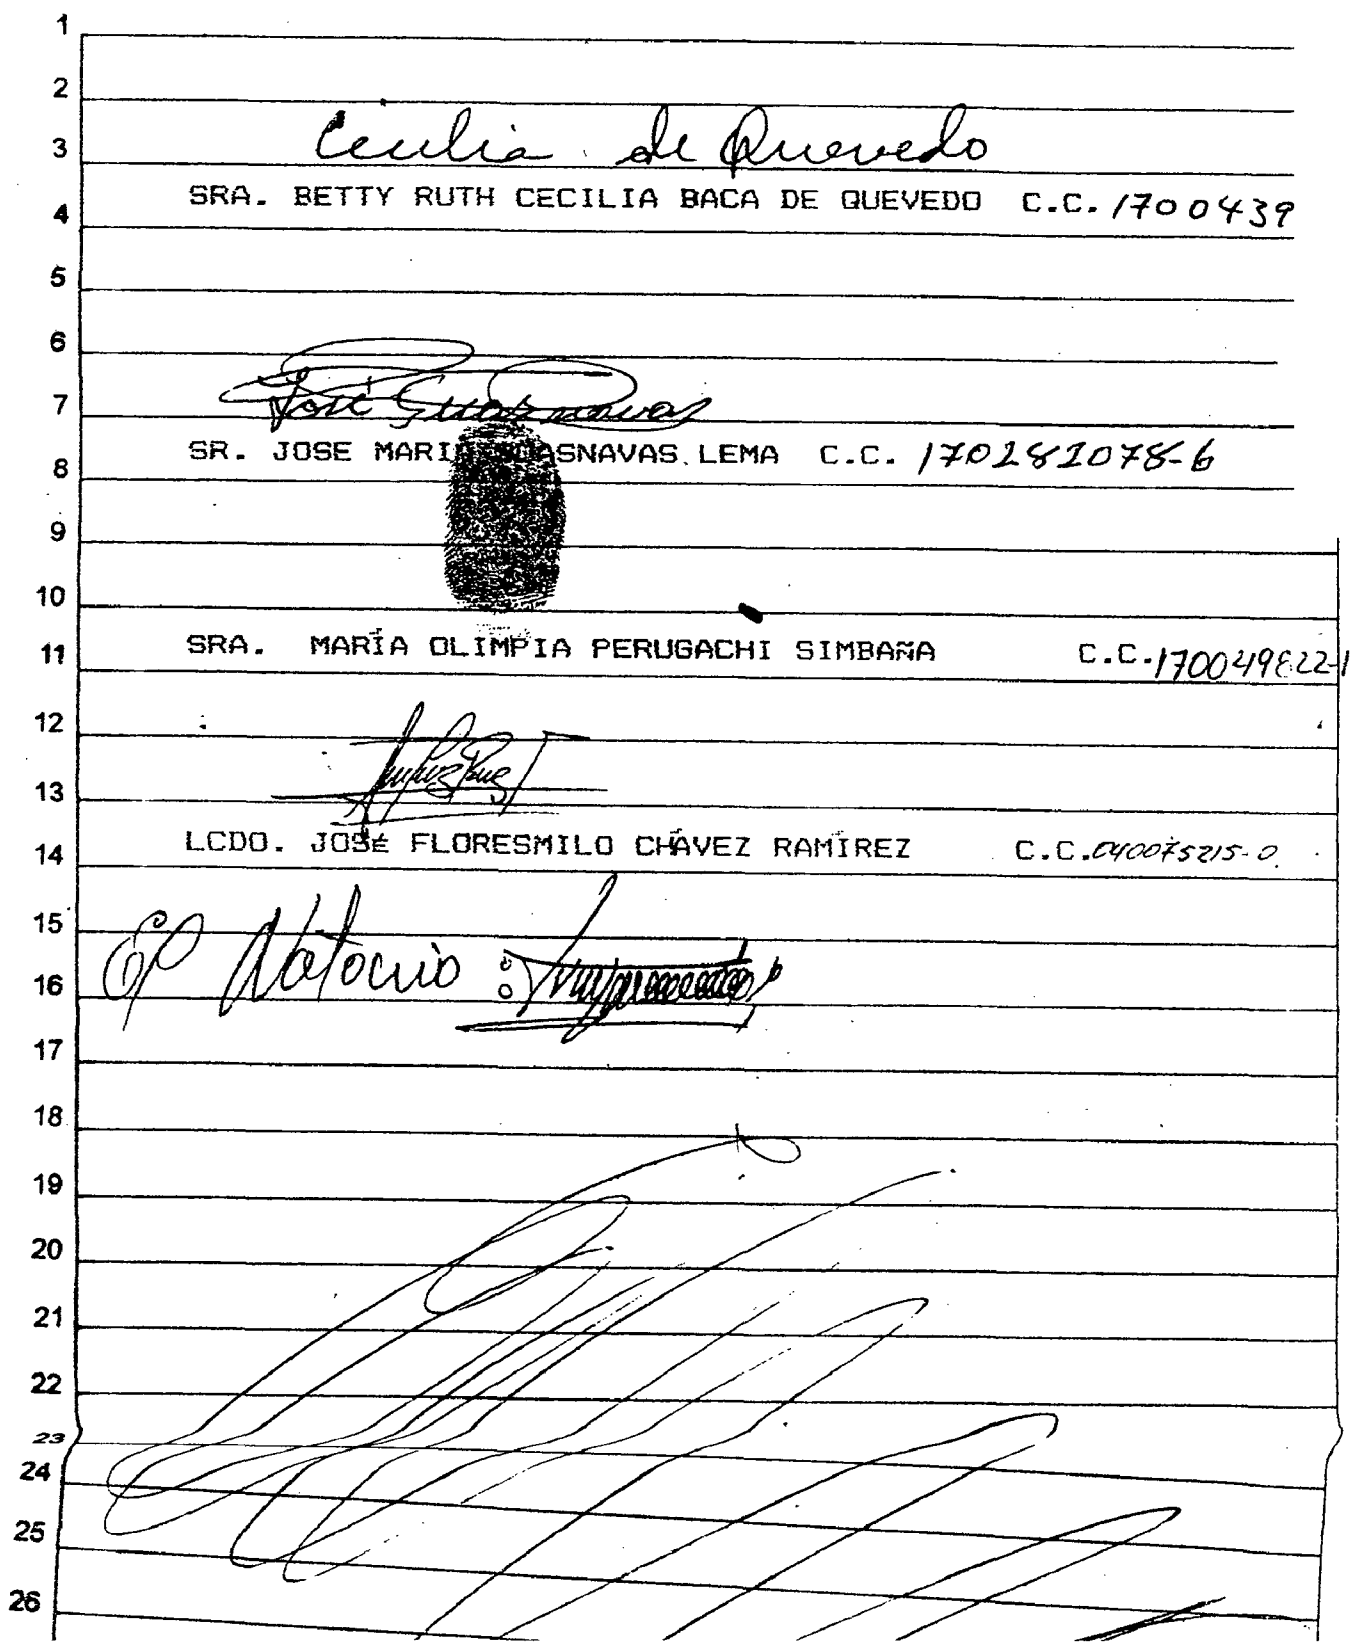 1
2
Cecilia de Quevedo
3
SRA. BETTY RUTH CECILIA BACA DE QUEVEDO C.C. 1700439
4
5
6
José Guasnavas
7
SR. JOSE MARIA GUASNAVAS LEMA C.C. 170281078-6
8
9
10
SRA. MARÍA OLIMPIA PERUGACHI SIMBAÑA C.C. 170049822-1
11
12
13
LCDO. JOSÉ FLORESMILO CHÁVEZ RAMÍREZ C.C. 040075215-0
14
15
El Notario :
16
17
18
19
20
21
22
23
24
25
26